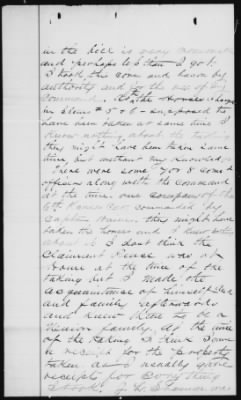 in the bill is very reasonable
and perhaps less than I got.
I took this corn and bacon by
authority and for the use of my
command. As to the Horses charged
in Items # 5 & 6 - supposed to
have been taken at same time I
know nothing about the taking
they might have been taken same
time but without my knowledge
There were some 7 or 8 some
officers along with the command
at the time. one company of the
6th commanded by
Captain they might have
taken the horses and I know nothing
about it. I dont think the
Claimant Pearce was at
Home at the time of the
taking but I made the
acquaintance of himself
and family afterwards
and knew them to be a
Union family. At the time
of the taking I think I gave
a receipt for the property
taken as I usually gave
receipt for Everything
I took. was